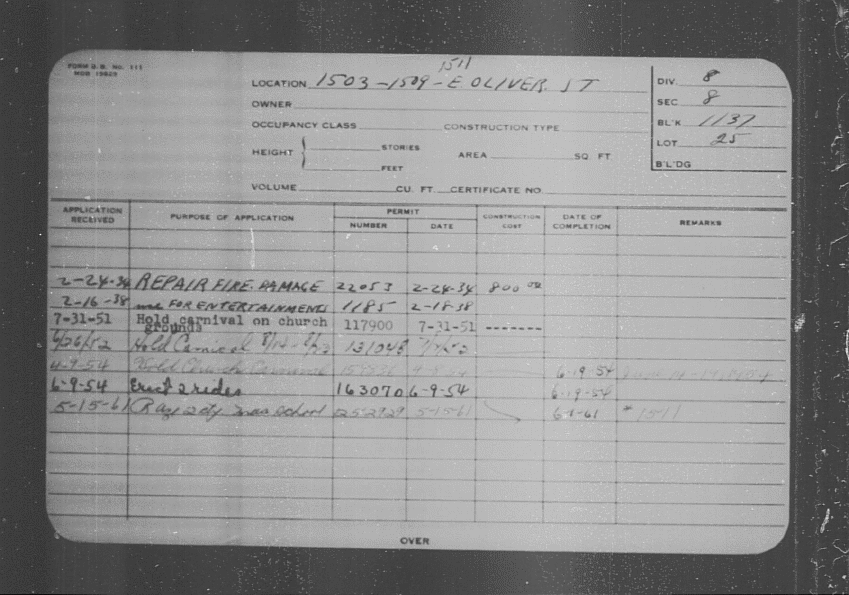 FORM D.B. No. 111
1511
LOCATION 1503-1509-E. OLIVER ST
DIV. 8
OWNER
SEC 8
OCCUPANCY CLASS CONSTRUCTION TYPE
BL'K 1137
HEIGHT STORIES FEET
AREA SQ FT
LOT 25
B'L'DG
VOLUME CU. FT. CERTIFICATE NO
APPLICATION RECEIVED PURPOSE OF APPLICATION PERMIT NUMBER DATE CONSTRUCTION COST DATE OF COMPLETION REMARKS
2-24-34 REPAIR FIRE DAMAGE 22053 2-24-34 800 00
2-16-38 use FOR ENTERTAINMENTS 1185 2-18-38
7-31-51 Hold carnival on church grounds 117900 7-31-51 -------
6/26/52 Hold Carnival 131048
4-9-54 Hold Church Carnival 6-19-54
6-9-54 Erect 2 rides 163070 6-9-54 6-19-54
5-15-61 Raze 2 sty school 5-15-61 * 1511
OVER